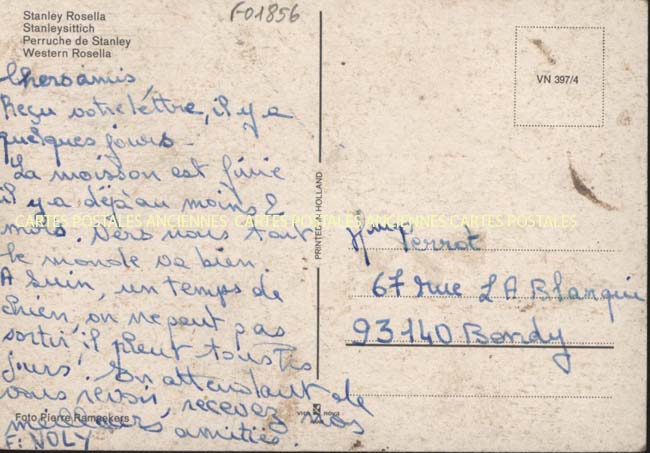 F01856
Stanley Rosella
Stanleysittich
Perruche de Stanley
Western Rosella
VN 397/4
Chers amis
Reçu votre lettre, il y a
quelques jours -
La moisson est finie
il y a déjà au moins 2
mois. Vers nous tout
le monde va bien.
A Suin, un temps de
chien, on ne peut pas
sortir, il pleut tous les
jours. En attendant de
vous revoir, recevez nos
meilleurs amitiés.
F: NOLY
CARTES POSTALES ANCIENNES CARTES POSTALES ANCIENNES CARTES POSTALES
PRINTED IN HOLLAND
Foto Pierre Ramaekers
vita nova
Mme Perrot
67 rue L A Blanqui
93140 Bondy